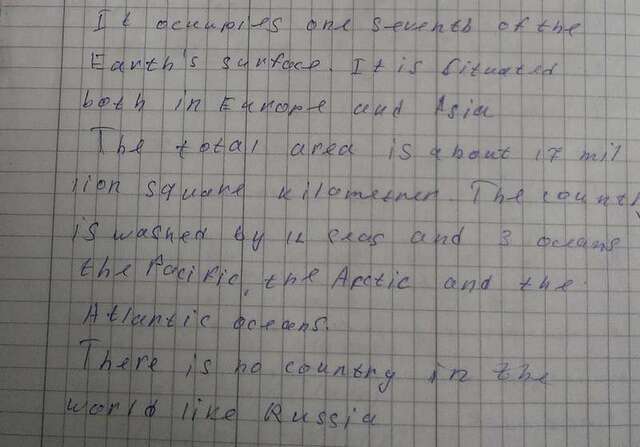 It occupies one seventh of the
Earth's surface. It is situated
both in Europe and Asia
The total area is about 17 mil
lion square kilometner. The count
is washed by 12 seas and 3 oceans
the Pacific, the Arctic and the
Atlantic oceans.
There is no country in the
world like Russia